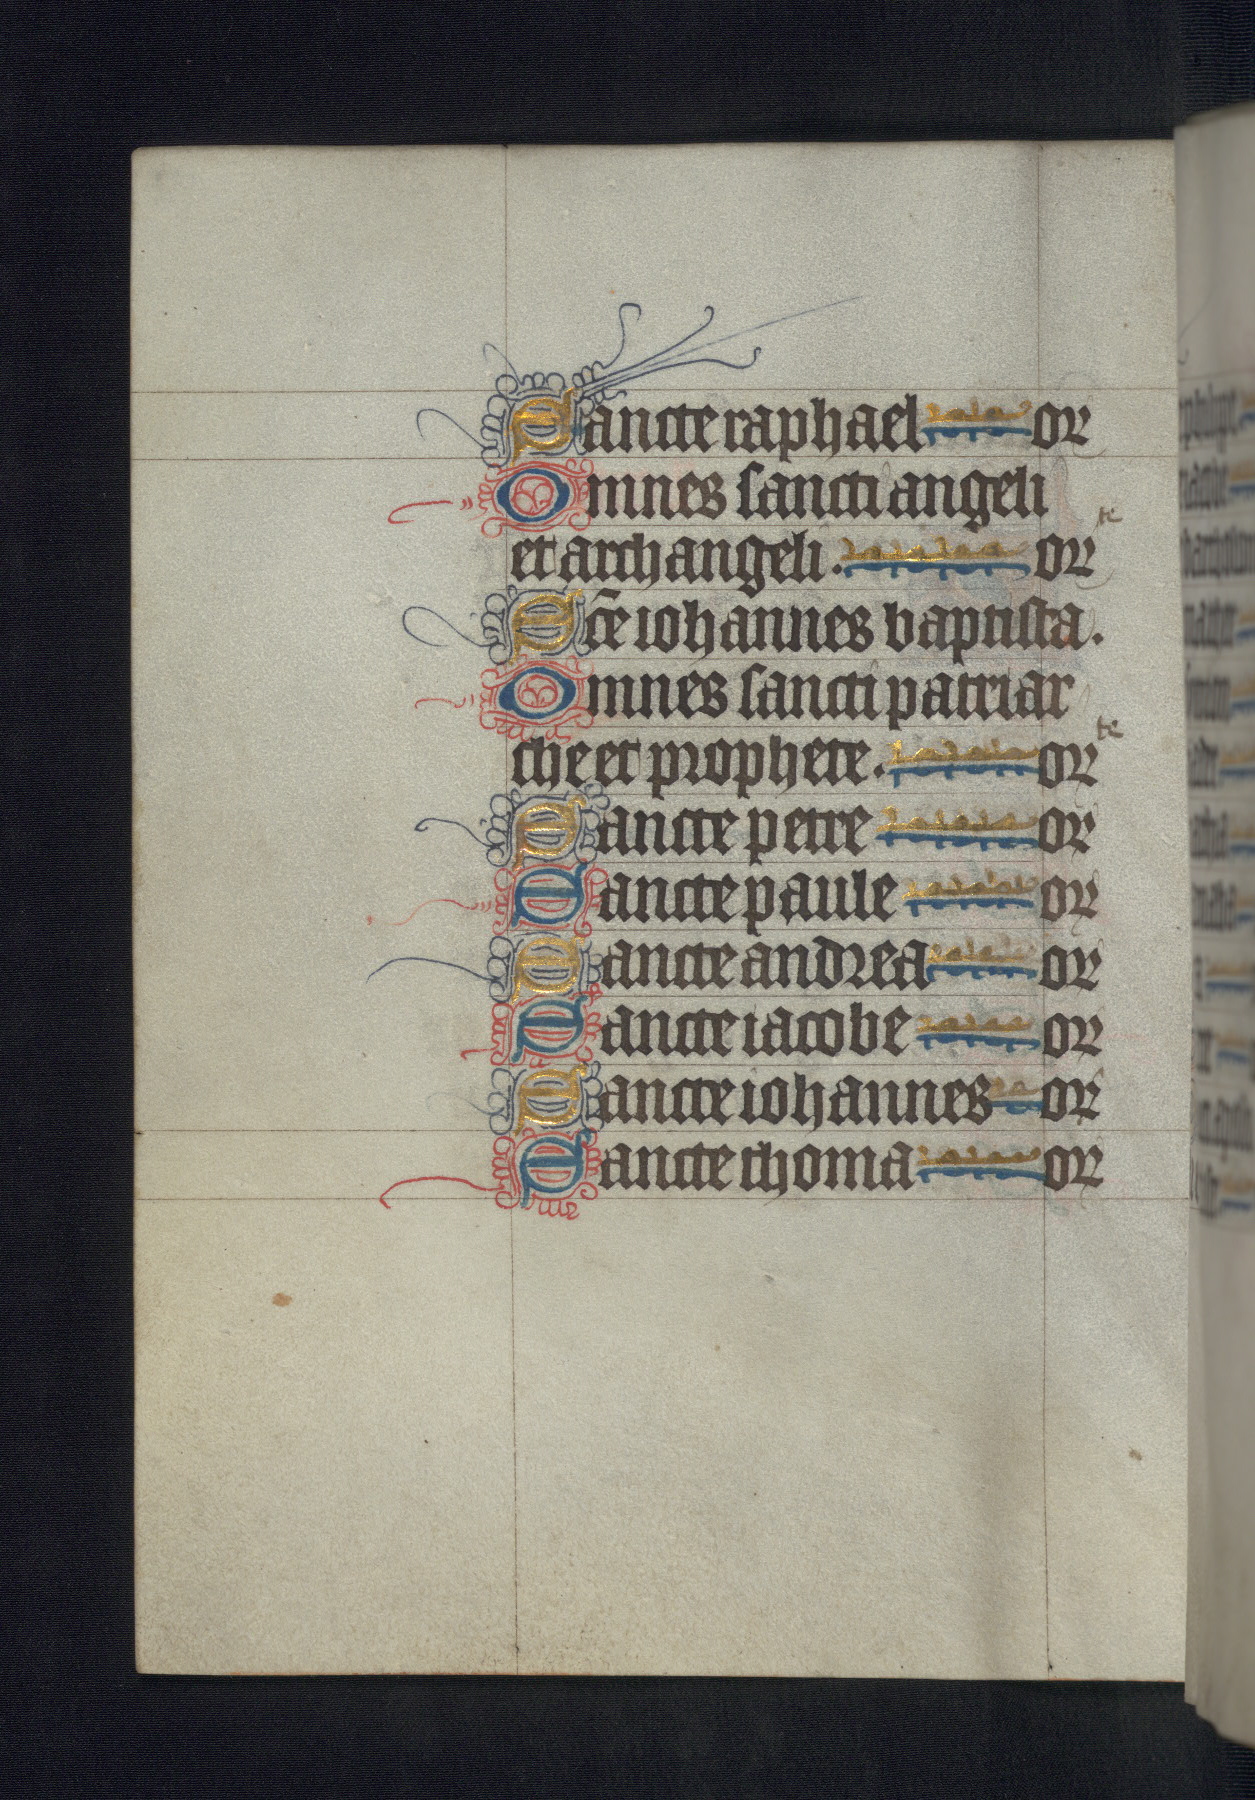 Sancte raphael or
Omnes sancti angeli
et archangeli. or te
Sc̄e iohannes baptista.
Omnes sancti patriar
che et prophete. or te
Sancte petre or
Sancte paule or
Sancte andrea or
Sancte iacobe or
Sancte iohannes or
Sancte thoma or